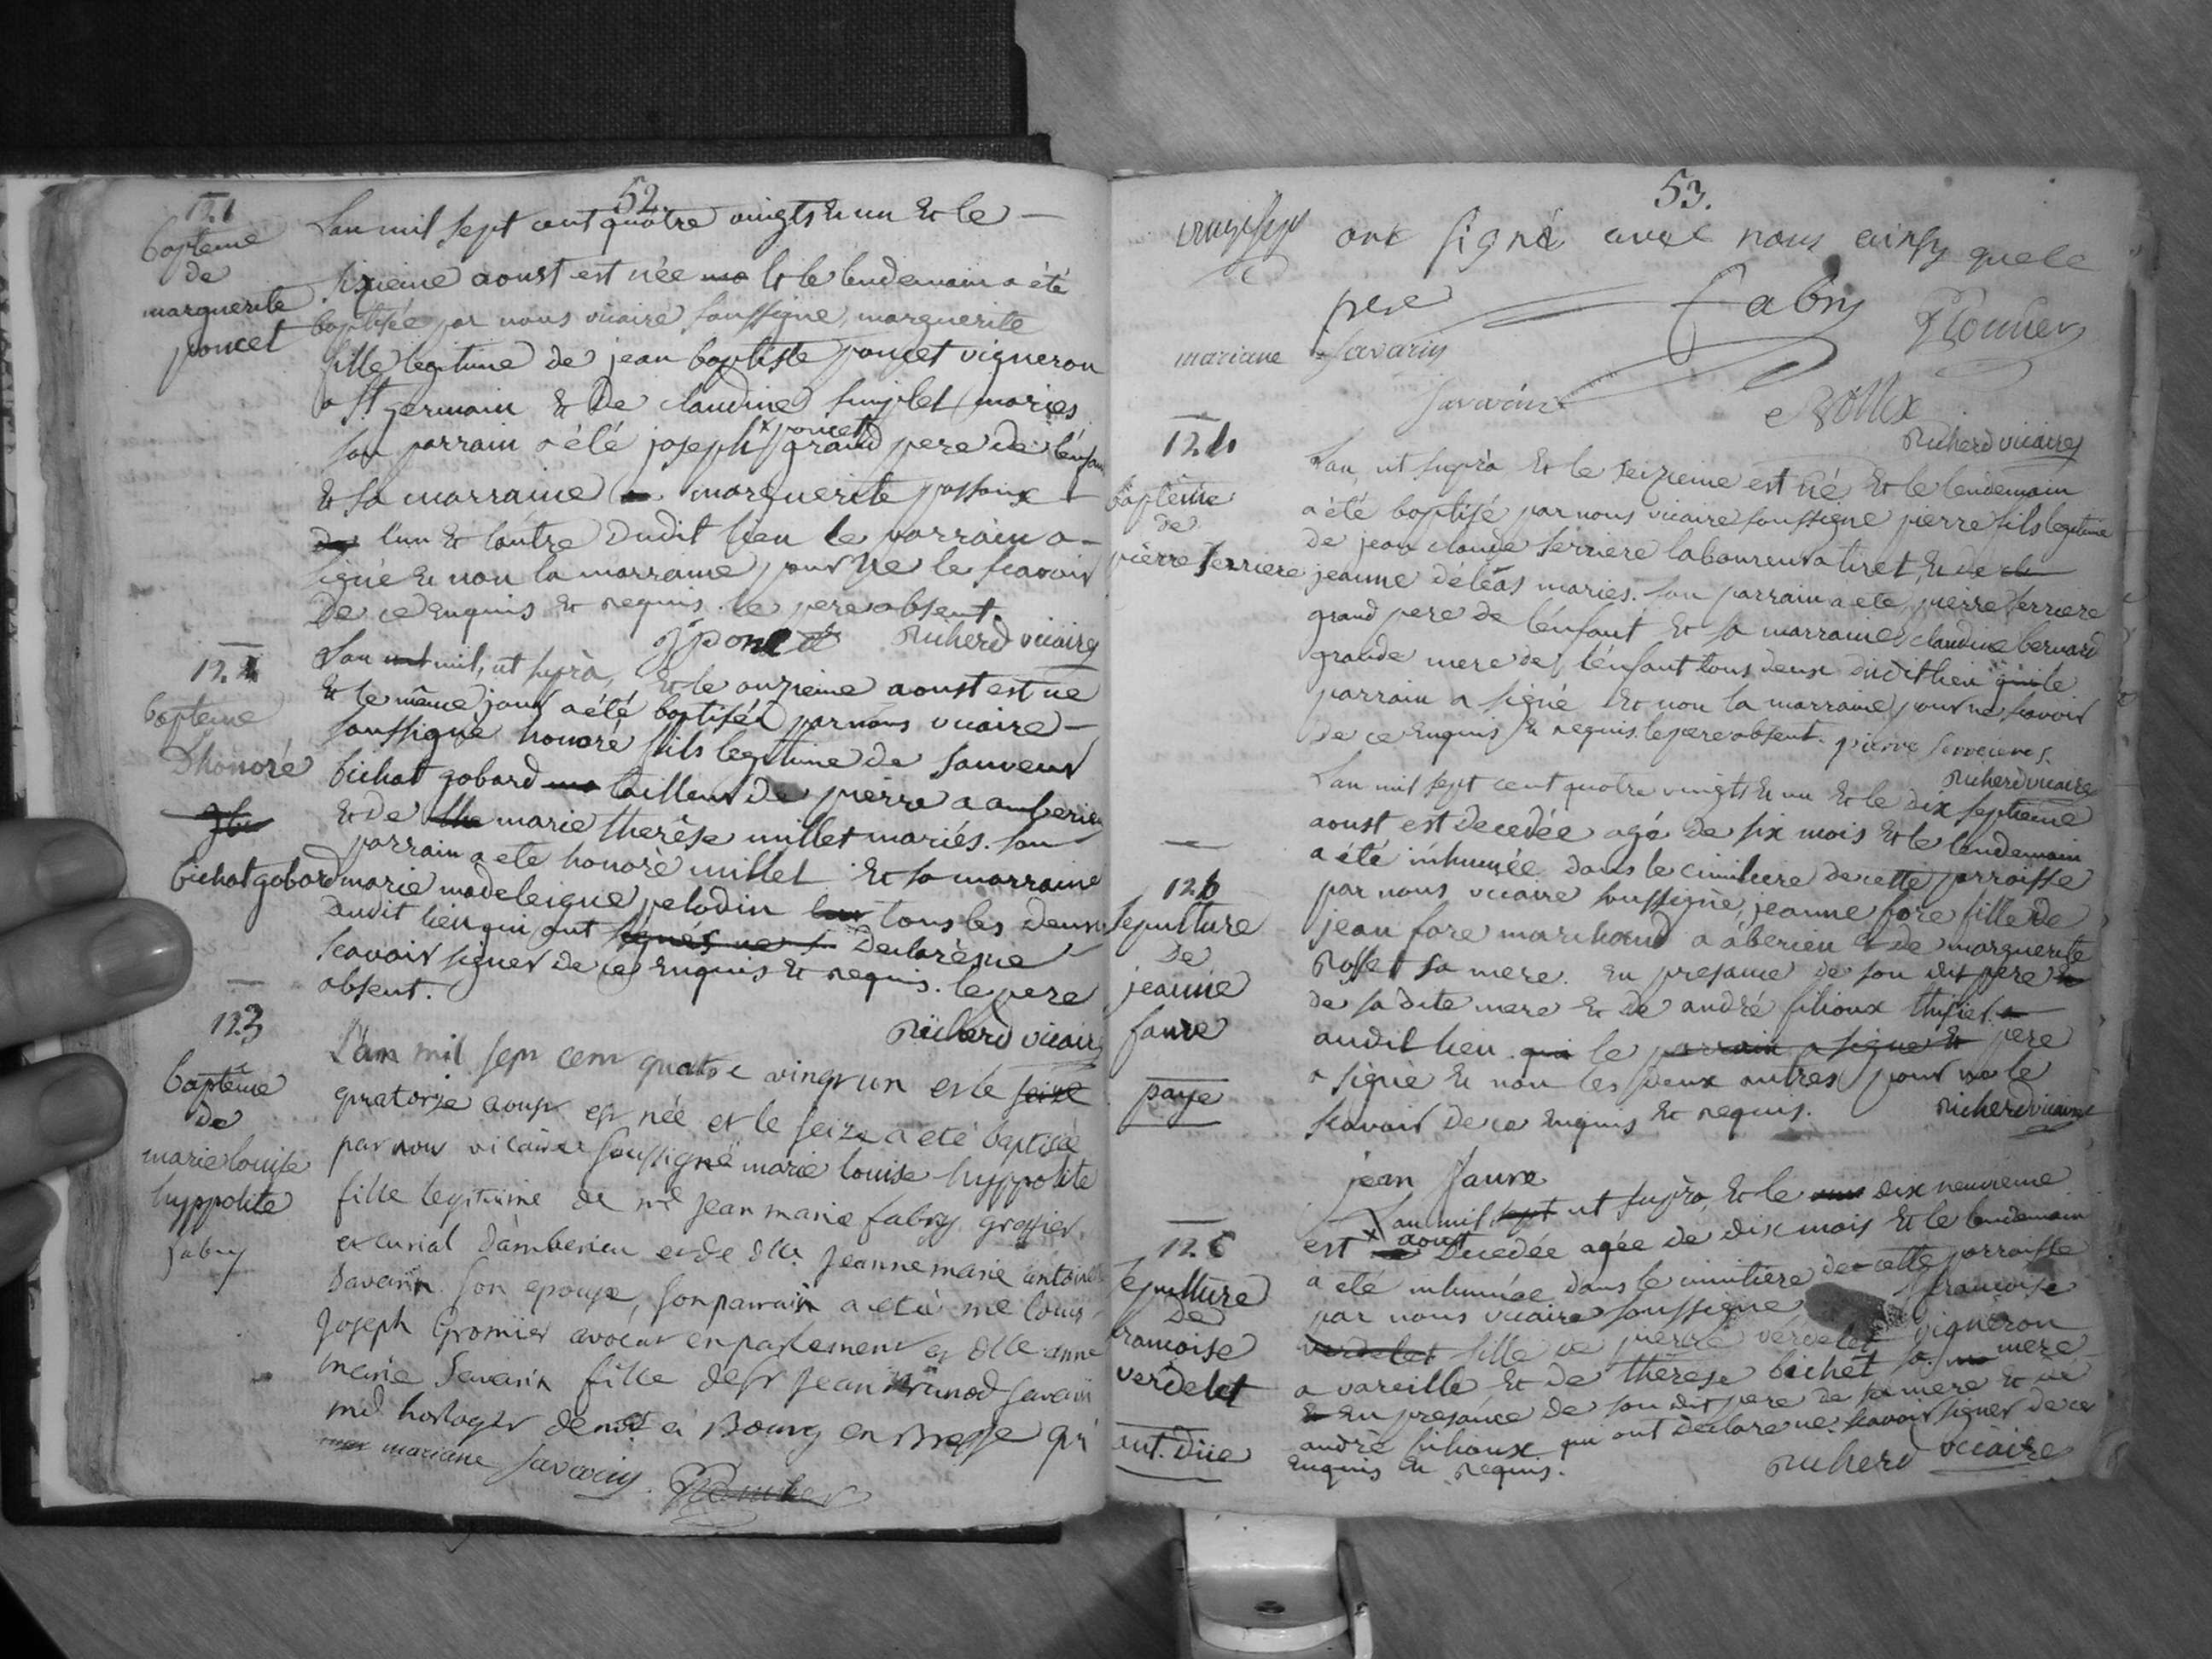 52.
121
bapteme
de
marguerite
poncet
Lan mil sept cent quatre vingts et un et le
sixieme aoust est née et le lendemain a été
baptisée par nous vicaire soussigné, marguerite
fille legitime de jean baptiste poncet vigneron
a st germain et de claudine mariés
son parrain a été joseph poncet grand pere de lenfant
et sa marraine marguerite
l'un et lautre dudit lieu le parrain a
signé et non la marraine pour ne le scavoir
de ce enquis et requis. le pere absent.
jponcet Richerd vicaire
122
bapteme
Dhonoré
bichat gobard
Lan mil, ut suprà, et le onzieme aoust est né
et le même jour a été baptisé par nous vicaire
soussigné honoré fils legitime de sauveur
bichat gobard tailleur de pierre a amberieu
et de marie therèse millet mariés. son
parrain a ete honoré millet et sa marraine
marie madeleigne pelodin tous les deux
dudit lieu qui ont declaré ne
scavoir signer de ce enquis et requis. le pere
absent.
Richerd vicaire
123
baptême
de
marie louise
hyppolite
fabry
L'an mil sept cent quatre vingt un et le seize
quatorze aoust est née et le seize a eté baptisée
par nous vicaire soussigné marie louise hyppolite
fille legitime de me jean marie fabry greffier
et curial d'amberieu et de dlle jeanne marie antoinette
savarin son epouse, son parrain a eté me louis
joseph Gromier avocat en parlement et dlle anne
marie Savarin fille de sr jean savarin
md horloger demt à Bourg en Bresse qui
mariane savarin
53.
ont signé avec nous ainsy que le
pere
Fabry
mariane Savarin
savarin
Richerd vicaire
124
bapteme
de
pierre ferriere
Lan, ut suprà et le seizieme est né et le lendemain
a été baptisé par nous vicaire soussigné pierre fils legitime
de jean claude ferriere laboureur a tiret, et de
jeanne déléas mariés. son parrain a eté pierre ferriere
grand pere de l'enfant et sa marraine claudine bernard
grande mere de l'enfant tous deux dudit lieu le
parrain a signé et non la marraine pour ne scavoir
de ce enquis et requis. le pere absent. pierre
Richerd vicaire
125
sepulture
de
jeanne
faure
paye
Lan mil sept cent quatre vingts et un et le dix septieme
aoust est decedée agé de six mois et le lendemain
a été inhumée dans le cimitiere de cette parroisse
par nous vicaire soussigné, jeanne fore fille de
jean fore marchand a aberieu et de marguerite
Rosset sa mere. en presance de son dit pere
de sa dite mere et de andré filioux
audit lieu le parrain a signé et pere
a signé et non les deux autres pour ne le
scavoir de ce enquis et requis. Richerd vicaire
jean faure
126
sepulture
de
francoise
verdelet
Lan mil sept ut suprà, et le dix neuvieme
est aoust decedée agée de dix mois et le lendemain
a été inhumée dans le cimitiere de cette parroisse
par nous vicaire soussigné francoise
verdelet fille de pierre verdelet vigneron
a vareille et de therese bichet sa mere
en presance de son dit pere de sa mere et de
andré filioux qui ont declaré ne scavoir signer de ce
enquis et requis.
Richerd vicaire